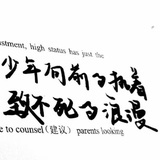 stment, high status has just the
少年向前的执着
致不死的浪漫
e to counsel (建议) parents looking